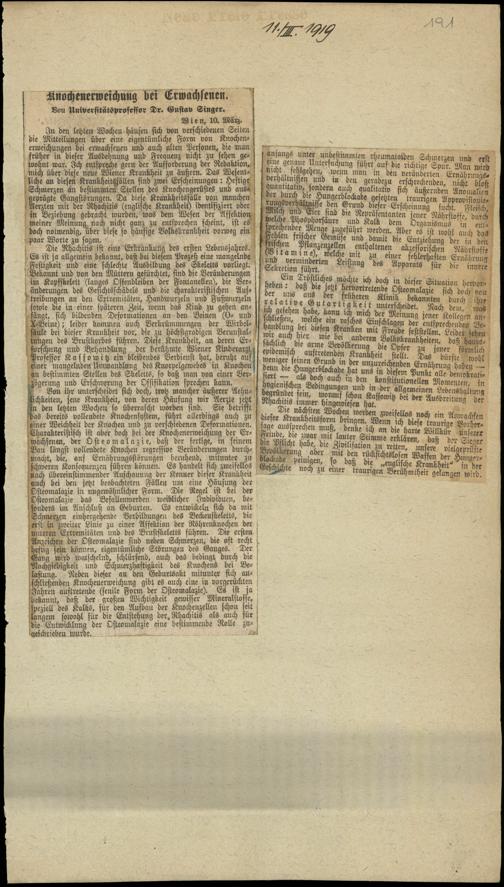 11./III. 1919
191
Knochenerweichung bei Erwachsenen.
Von Universitätsprofessor Dr. Gustav Singer.
Wien, 10. März.
In den letzten Wochen häufen sich von verschiedenen Seiten
die Mitteilungen über eine eigentümliche Form von Knochen-
erweichungen bei erwachsenen und auch alten Personen, die man
früher in dieser Ausdehnung und Frequenz nicht zu sehen ge-
wohnt war. Ich entspreche gern der Aufforderung der Redaktion,
mich über diese neue Wiener Krankheit zu äußern. Das Wesent-
liche an diesen Krankheitsfällen sind zwei Erscheinungen: Heftige
Schmerzen an bestimmten Stellen des Knochengerüstes und aus-
geprägte Gangstörungen. Da diese Krankheitsfälle von manchen
Aerzten mit der Rhachitis (englische Krankheit) identifiziert oder
in Beziehung gebracht wurden, was dem Wesen der Affektion
meiner Meinung nach nicht ganz zu entsprechen scheint, ist es
doch notwendig, über diese so häufige Volkskrankheit vorweg ein
paar Worte zu sagen.
Die Rhachitis ist eine Erkrankung des ersten Lebensjahres.
Es ist allgemein bekannt, daß bei diesem Prozeß eine mangelnde
Festigkeit und eine schlechte Ausbildung des Skeletts vorliegt.
Bekannt und von den Müttern gefürchtet, sind die Veränderungen
im Kopfskelett (langes Offenbleiben der Fontanellen), die Ver-
änderungen des Gesichtsschädels und die charakteristischen Auf-
treibungen an den Extremitäten, Handwurzeln und Fußwurzeln
sowie die in einer späteren Zeit, wenn das Kind zu gehen an-
fängt, sich bildenden Deformationen an den Beinen (O- und
X-Beine); leider kommen auch Verkrümmungen der Wirbel-
säule bei dieser Krankheit vor, die zu höchstgradigen Verunstal-
tungen des Brustkorbes führen. Diese Krankheit, an deren Er-
forschung und Behandlung der berühmte Wiener Kinderarzt
Professor Kassowitz ein bleibendes Verdienst hat, beruht auf
einer mangelnden Umwandlung des Knorpelgewebes in Knochen
an bestimmten Stellen des Skeletts, so daß man von einer Ver-
zögerung und Erschwerung der Ossifikation sprechen kann.
Von ihr unterscheidet sich doch, trotz mancher äußerer Aehn-
lichkeiten, jene Krankheit, von deren Häufung wir Aerzte jetzt
in den letzten Wochen so überrascht worden sind. Sie betrifft
das bereits vollendete Knochensystem, führt allerdings auch zu
einer Weichheit der Knochen und zu verschiedenen Deformationen.
Charakteristisch ist aber doch bei der Knochenerweichung der Er-
wachsenen, der Osteomalazie, daß der fertige, in seinem
Bau längst vollendete Knochen regressive Veränderungen durch-
macht, die, auf Ernährungsstörungen beruhend, mitunter zu
schweren Konsequenzen führen können. Es handelt sich zweifellos
nach übereinstimmender Anschauung der Kenner dieser Krankheit
auch bei den jetzt beobachteten Fällen um eine Häufung der
Osteomalazie in ungewöhnlicher Form. Die Regel ist bei der
Osteomalazie das Befallenwerden weiblicher Individuen, be-
sonders im Anschluß an Geburten. Es entwickeln sich da mit
Schmerzen einhergehende Verbildungen des Beckenskeletts, die
erst in zweiter Linie zu einer Affektion der Röhrenknochen der
unteren Extremitäten und des Brustskeletts führen. Die ersten
Anzeichen der Osteomalazie sind neben Schmerzen, die oft recht
heftig sein können, eigentümliche Störungen des Ganges. Der
Gang wird watschelnd, schlürfend, auch das bedingt durch die
Nachgiebigkeit und Schmerzhaftigkeit des Knochens bei Be-
lastung. Neben dieser an den Geburtsakt mitunter sich an-
schließenden Knochenerweichung gibt es auch eine in vorgerückten
Jahren auftretende (senile Form der Osteomalazie). Es ist ja
bekannt, daß der großen Wichtigkeit gewisser Mineralstoffe,
speziell des Kalks, für den Aufbau der Knochenzellen schon seit
langem sowohl für die Entstehung der Rhachitis als auch für
die Entwicklung der Osteomalazie eine bestimmende Rolle zu-
geschrieben wurde.
anfangs unter unbestimmten rheumatoiden Schmerzen und erst
eine genaue Untersuchung führt auf die richtige Spur. Man wird
nicht fehlgehen, wenn man in den veränderten Ernährungs-
verhältnissen und in den geradezu erschreckenden, nicht bloß
quantitativ, sondern auch qualitativ sich äußernden Abnormitäten
der durch die Hungerblockade gesetzten traurigen Approvisionie-
rungsverhältnisse den Grund dieser Erscheinung sucht. Fleisch,
Milch und Eier sind die Repräsentanten jener Nährstoffe, durch
welche Phosphorsäure und Kalk dem Organismus in ent-
sprechender Menge zugeführt werden. Aber es ist wohl auch das
Fehlen frischer Gemüse und damit die Entziehung der in den
frischen Pflanzenzellen enthaltenen akzessorischen Nährstoffe
(Vitamine), welche mit zu einer fehlerhaften Ernährung
und verminderten Leistung des Apparats für die innere
Sekretion führt.
Ein Tröstliches möchte ich doch in dieser Situation hervor-
heben: daß die jetzt hervortretende Osteomalazie sich doch von
der uns aus der früheren Klinik bekannten durch ihre
relative Gutartigkeit unterscheidet. Nach dem, was
ich gesehen habe, kann ich mich der Meinung jener Kollegen an-
schließen, welche ein rasches Einschlagen der entsprechenden Be-
handlung bei diesen Kranken mit Freude feststellen. Leider sehen
wir auch hier, wie bei anderen Volkskrankheiten, daß haupt-
sächlich die arme Bevölkerung die Opfer zu jener ziemlich
epidemisch auftretenden Krankheit stellt. Das dürfte wohl
weniger seinen Grund in der unzureichenden Ernährung haben —
denn die Hungerblockade hat uns in diesem Punkte alle demokrati-
siert — als doch auch in den konstitutionellen Momenten, in
hygienischen Bedingungen und in der allgemeinen Lebenshaltung
begründet sein, worauf schon Kassowitz bei der Ausbreitung der
Rhachitis immer hingewiesen hat.
Die nächsten Wochen werden zweifellos noch ein Anwachsen
dieser Krankheitsform bringen. Wenn ich diese traurige Vorher-
sage aussprechen muß, denke ich an die harte Willkür unserer
Feinde, die zwar mit lauter Stimme erklären, daß der Sieger
die Pflicht habe, die Zivilisation zu retten, unsere vielgeprüfte
Bevölkerung aber mit den rücksichtslosen Waffen der Hunger-
blockade peinigen, so daß die „englische Krankheit“ in der
Geschichte noch zu einer traurigen Berühmtheit gelangen wird.